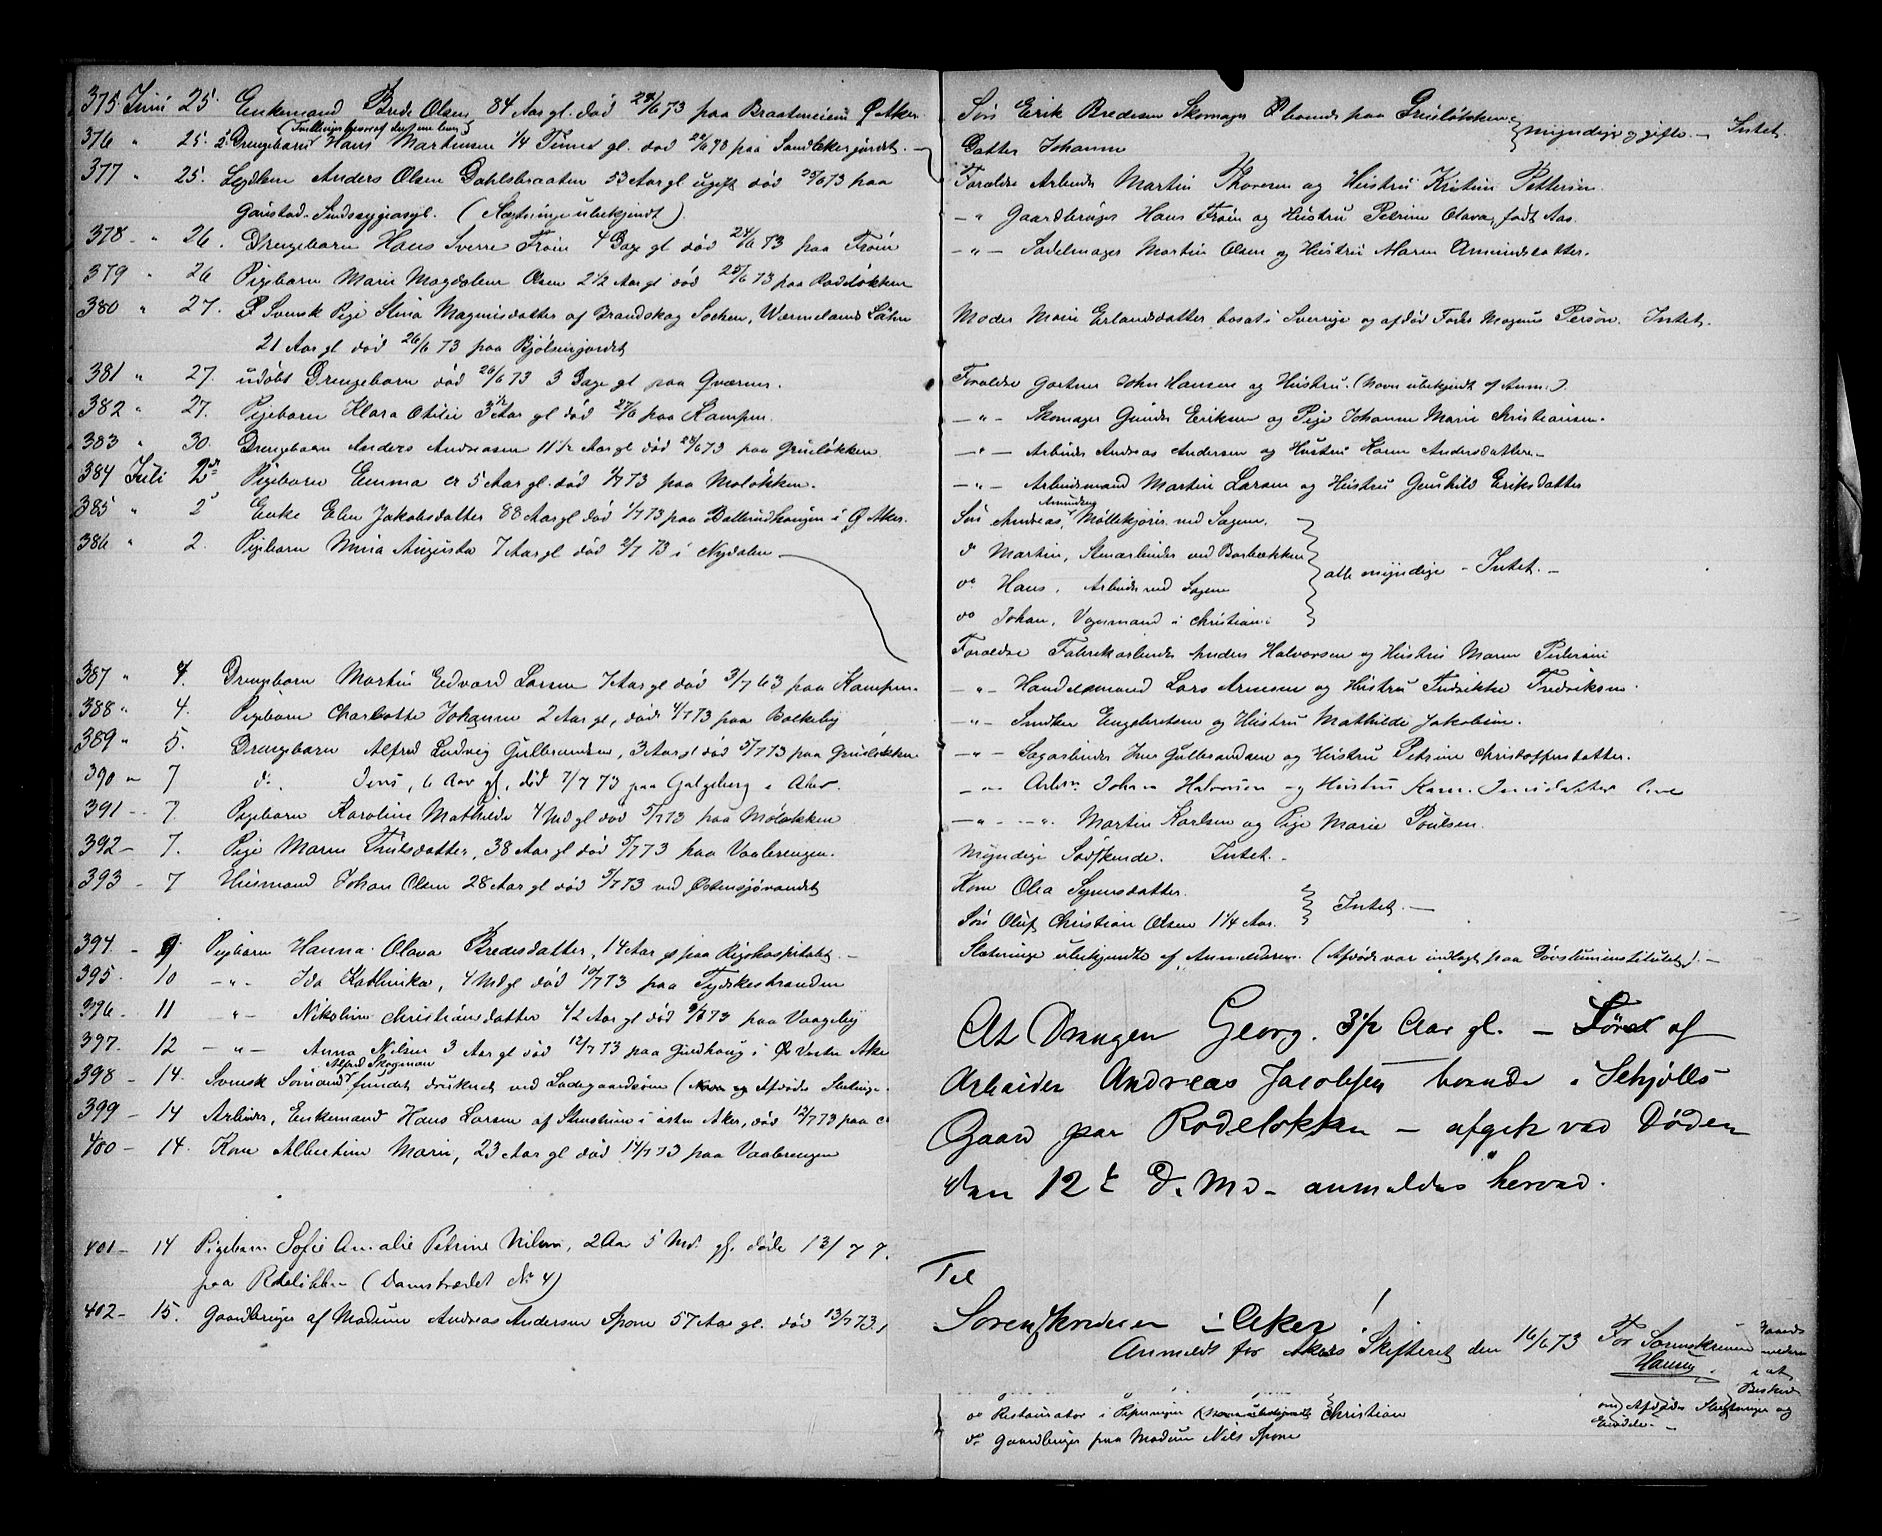 375. Juni 25. Enkemand Brede Olsen, 84 Aar gl. død 24/6 73 paa Braateneiene Ø Aker.
(Tvillinger hvoraf den ene lever)
376 " 25. 2 Drengebarn Hans Martinsen 1/4 Time gl. død 22/6 73 paa Sandakerjordet.
377 " 25. Anders Olsen Dahlsbraaten 53 Aar gl ugift død 23/6 73 paa
Gaustad Sindssygeasyl. (Slægtninge ubekjendt)
378 - " 26. Drengebarn Hans Sverre Frøen 4 Dage gl død 24/6 73 paa Frøen
379 " 26 Pigebarn Marie Magdalene Olsen 2 1/2 Aar gl død 25/6 73 paa Rodeløkken
380 " 27. Svensk Pige Stina Magnusdatter af Brandskog Sochen, Wærmelands Lähn
21 Aar gl død 26/6 73 paa Bjølsenjordet
381 " 27. udøbt Drengebarn død 26/6 73 3 Dage gl paa Qværner.
382 " 27. Pigebarn Klara Otilie 3 1/2 Aar gl død 27/6 paa Kampen.
383 " 30. Drengebarn Anders Andreasen 11 1/2 Aar gl død 28/6 73 paa Grünløkken.
384 Juli 2den Pigebarn Emma er 5 Aar gl. død 1/7 73 paa Moløkken.
385 " 2 Enke Elen Jakobsdatter 88 Aar gl død 1/7 73 paa Ballerudhaugen i Ø Aker.
386 " 2. Pigebarn Maria Augusta 7 Aar gl død 2/7 73 i Nydalen
387 " 4. Drengebarn Martin Edvard Larsen 7 Aar gl død 3/7 63 paa Kampen.
388 " 4. Pigebarn Charlotte Johanne 2 Aar gl, død 4/7 73 paa Balkeby
389 " 5. Drengebarn Alfred Ludvig Gulbrandsen, 3 Aar gl død 5/7 73 paa Grünløkken
390 " 7 do. Jens, 6 Aar gl, død 7/7 73 paa Galgeberg i Aker.
391 - 7. Pigebarn Karoline Mathilde 4 Md gl død 5/7 73 paa Moløkken
392 - 7. Pige Maren Trulsdatter, 38 Aar gl død 5/7 73 paa Vaalerengen.
393 - 7 Husmand Johan Olsen 28 Aar gl død 5/7 73 ved Østensjøvandet
394 - 9. Pigebarn Hanna Olava Bredesdatter, 14 Aar gl paa Rigshospitalet.
395 - 10 - " - Ida Kathinka, 4 Md gl død 10/7 73 paa Tydskestranden
396 - 11 " - Nikoline Christiansdatter 42 Aar gl død 9/7 73 paa Vaageby
397. - 12 - " - Anna Nilsen 3 Aar gl død 12/7 73 paa Grindhaug i Vestre Ake
Alfred Skogman
398 - 14. Svensk Sømand fundet druknet ved Ladegaardsøen ( Afdødes Slægtninge
399 - 14 Arbeider, Enkemand Hans Larsen af Stenstuen i østre Aker, død 12/7 73 paa
400 - 14. Kone Albertine Marie, 23 Aar gl død 14/7 73 paa Vaalerengen
401 - 14 Pigebarn Sofie Amalie Petrine Nilsen, 2 Aar 5 Md. gl. døde 13/7 7
paa Rodeløkken (Damstrædet No 4)
402 - 15. Gaardbruger af Modum Andreas Andersen Spone 57 Aar gl. død 13/7 73.
Søn Erik Bredesen Skomager boende paa Grünløkken
Datter Johanne } myndige og gifte. - Intet.
Forældre Arbeider Martin Thoresen og Hustru Kristine Pettersen.
- " Gaardbruger Hans Frøen og Hustru Petrine Olava, født Aas.
- " - Sadelmager Martin Olsen og Hustru Maren Amundsdatter.
Moder Marie Erlandsdatter bosat i Sverige og afdød Fader Magnus Persøn. Intet.
Forældre Gartner John Hansen og Hustru. (Navn ubekjendt af Anm.).
- " - Skomager Gunder Eriksen og Pige Johanne Marie Christiansen.
- " - Arbeider Andreas Andersen og Hustru Karen Andersdatter
- " - Arbeidsmand Martin Larsen og Hustru Gunhild Eriksdatter
Søn Andreas Amundsen, Møllekjører ved Sagene.
do Martin, Stenarbeider ved Borbækken
do Hans, Arbeider ved Sagene
do Johan, Vognmand i Christiania } alle myndige - Intet. -
Forældre Fabrikarbeider Anders Halvorsen og Hustru Maren Pedersen
- " - Handelsmand Lars Arnesen og Hustru Fredrikke Fredriksen.
- " - Snedker Engebretsen og Hustru Mathilde Jakobsen.
- " - Sagarbeider Iver Gulbrandsen og Hustru Petrine Christoffersdatter.
- " - Arbr. Johan Halvorsen og Hustru Karen Jensdatter
- " - - " - Martin Karlsen og Pige Marie Poulsen.
Myndige Sødskende. Intet. -
Kone Olea Syversdatter.
Søn Oluf Christian Olsen 1 1/4 Aar. } Intet. -
Slægtninge ubekjendte af Anmelderen. (Afdøde var indlagt paa Døvstuminstitutet). -
At Drengen Georg. 3 1/2 Aar gl. - Søn af
Arbeider Andreas Jacobsen boende i Schjølls
Gaard paa Rodeløkken - afgik ved Døden
den 12te d. Md - anmeldes herved.
Til
Sorenskriveren i Aker!
Anmeldt for Akers Skifteret den 16/6 73 For Sorenskriveren
Hansen
om Afdødes Slægtninge og
do Restauratør i Pipervigen (Navn ubekjendt) Christian
do Gaardbruger paa Modum Nils Spone